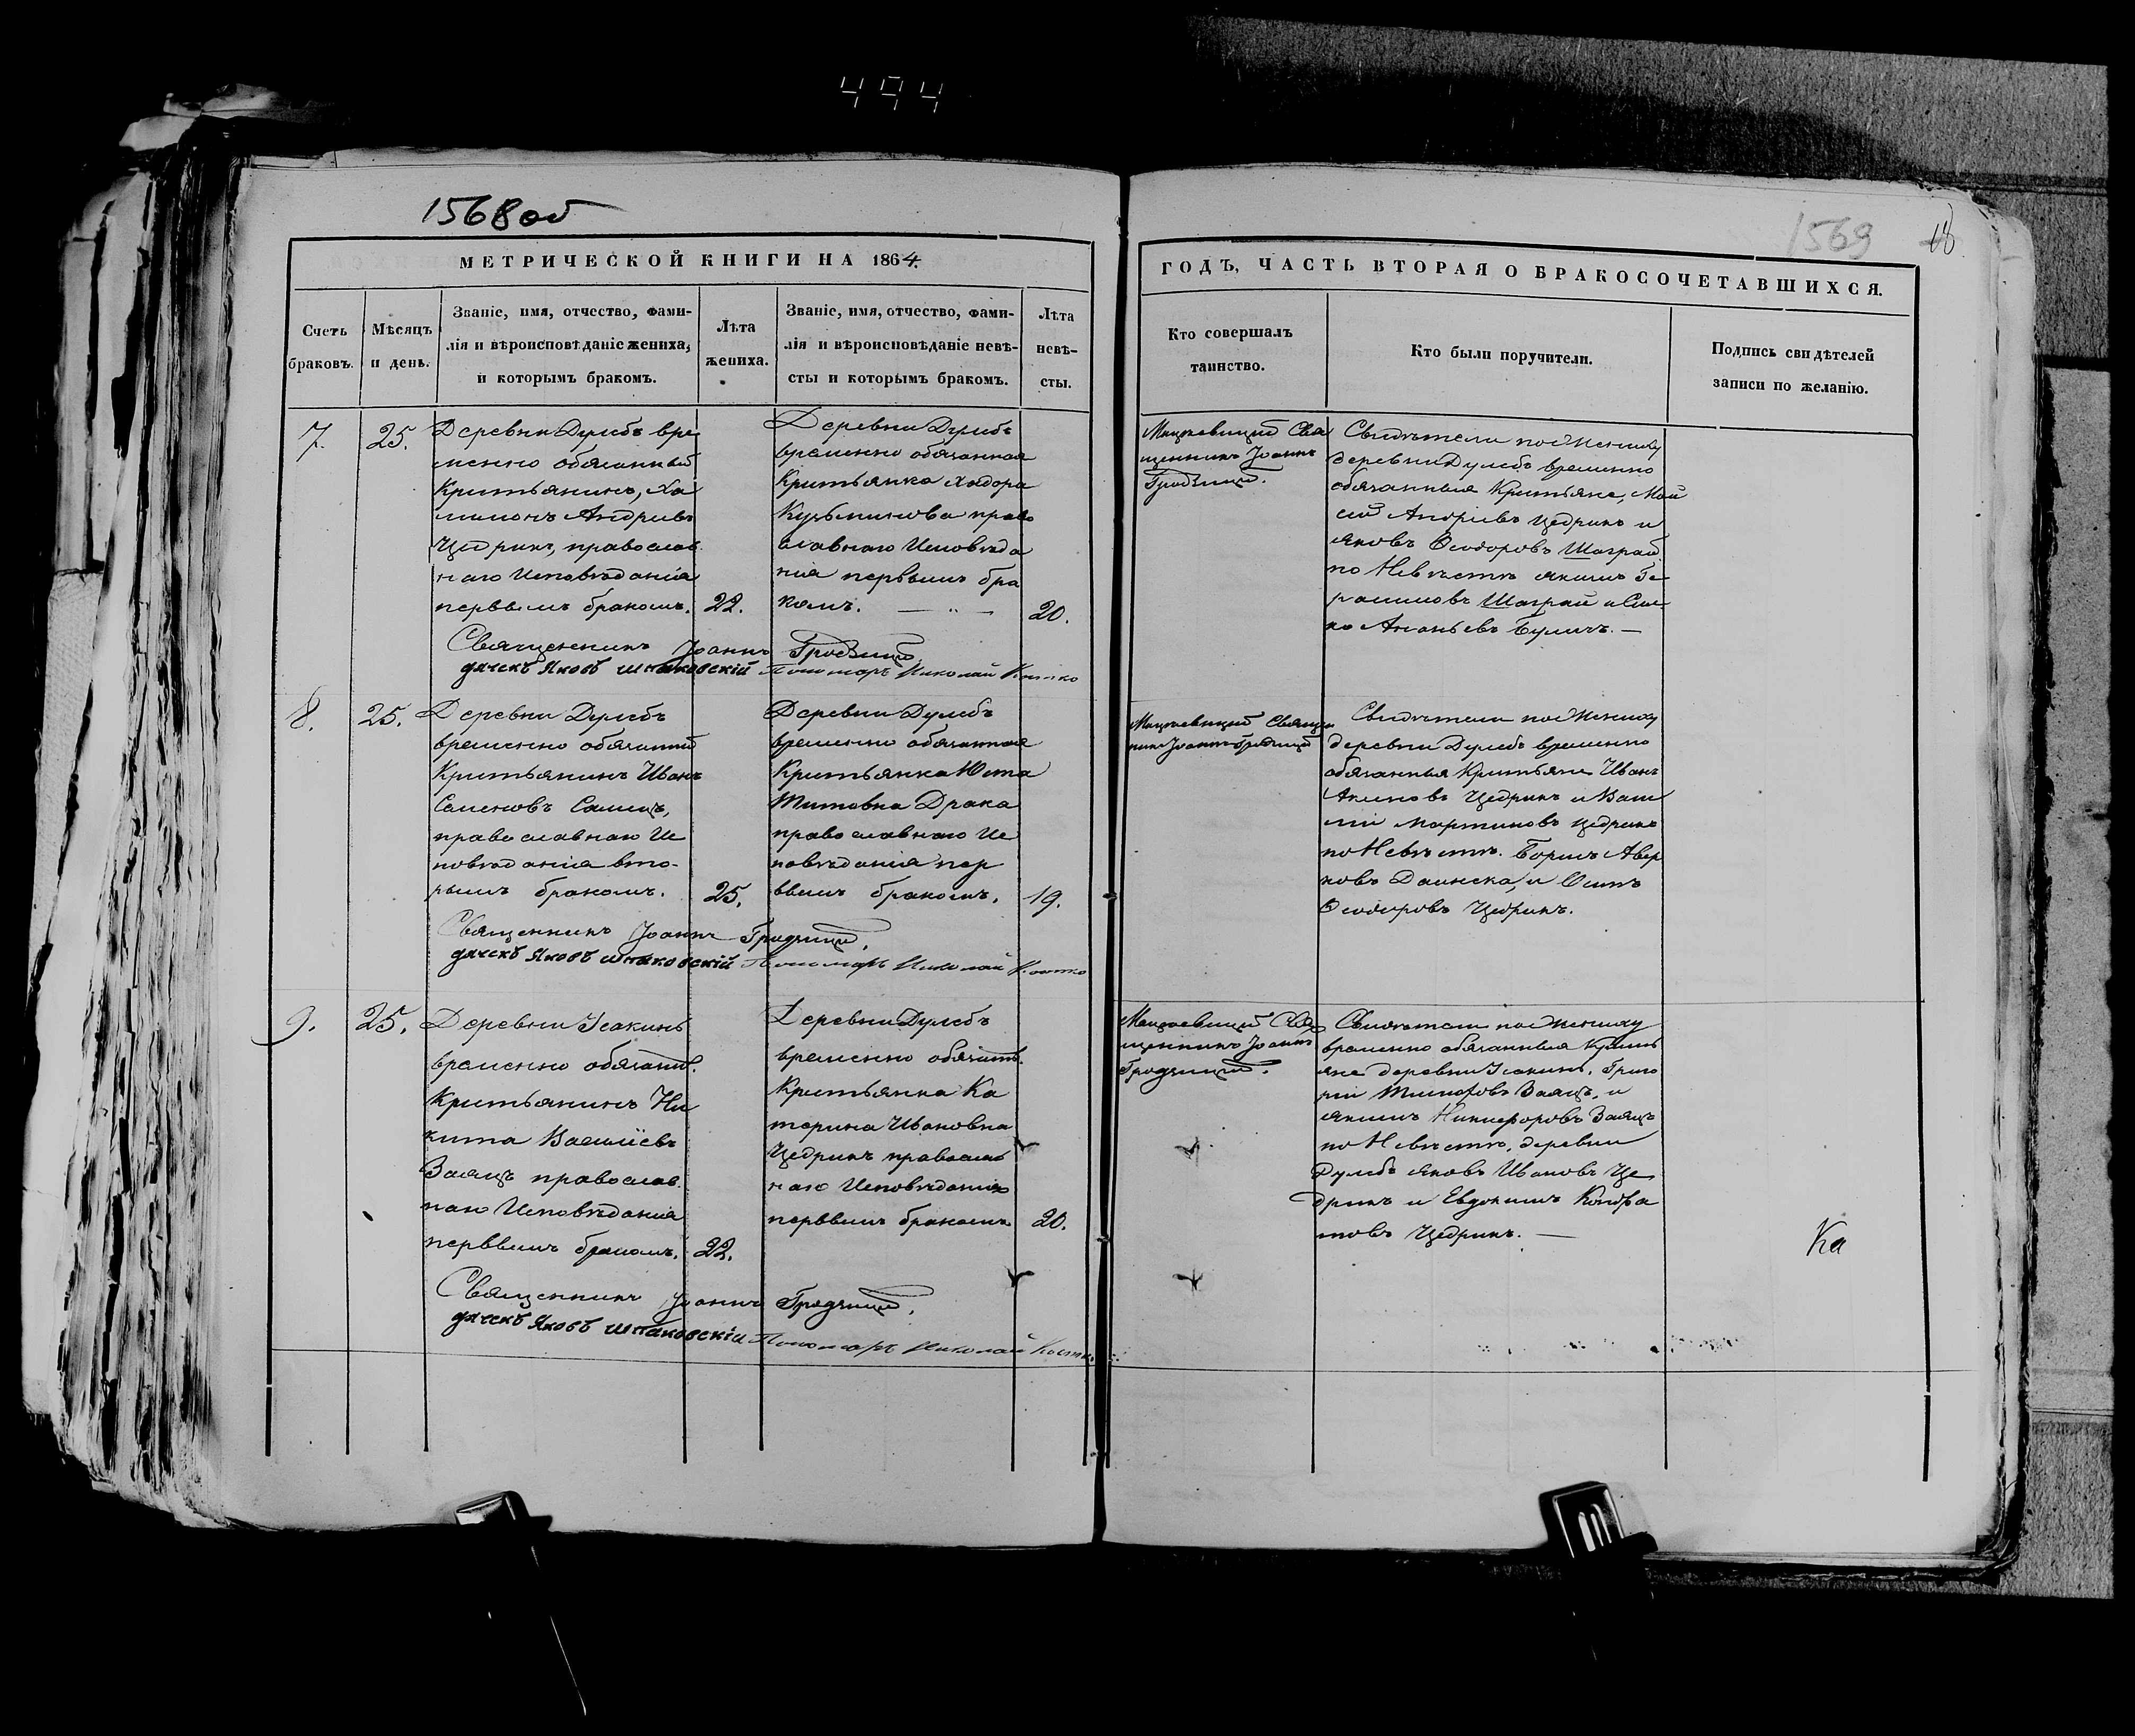 494
1568 об
1569
18
МЕТРИЧЕСКОЙ КНИГИ НА 1864.
ГОДЪ, ЧАСТЬ ВТОРАЯ О БРАКОСОЧЕТАВШИХСЯ.
Счетъ
браковъ.
Мѣсяцъ
и день.
Званіе, имя, отчество, фами-
лія и вѣроисповѣданіе жениха,
и которымъ бракомъ.
Лѣта
жениха.
Званіе, имя, отчество, фами-
лія и вѣроисповѣданіе невѣ-
сты и которымъ бракомъ.
Лѣта
невѣ-
сты.
Кто совершалъ
таинство.
Кто были поручители.
Подпись свидѣтелей
записи по желанію.
7.
25.
Деревни Дулебъ вре
менно обязанный
Кристьянинъ, Ха
Андріевъ
Цедрикъ, православ
наго Исповѣданія
первымъ бракомъ.
22.
Деревни Дулебъ
временно обязанная
Кристьянка Хадора
Кузьминова право
славнаго Исповѣда
нія первымъ бра
комъ. — „ —
20.
Свя
щенникъ Іоаннъ
Гродзицкій.
Свидѣтели по Жениху
деревни Дулебъ временно
обязанныя Кристьяне, Мой
сей Андріевъ Цедрикъ и
Яковъ Ѳеодоровъ Шаграй
по Невѣстѣ Якимъ Ге
расимовъ Шаграй и
Ананьевъ Буличъ. —
Священникъ Іоаннъ Гродзицкій
дячекъ Яковъ Шпаковскій Пономаръ Николай
8.
25.
Деревни Дулебъ
временно обязанный
Кристьянинъ Иванъ
Семеновъ
православнаго Ис
повѣданія вто-
рымъ бракомъ.
25.
Деревни Дулебъ
временно обязанная
Кристьянка Юста
Титовна Драка
православнаго Ис
повѣданія пер
вымъ бракомъ.
19.
Священ
никъ Іоаннъ Гродзицкій
Свидѣтели по Жениху
деревни Дулебъ временно
обязанныя Кристьяне Иванъ
Цедрикъ и Васи
лій Мартиновъ Цедрикъ
по Невѣстѣ. Борисъ Авер
ковъ и Осипъ
Ѳеодоровъ Цедрикъ.
Священникъ Іоаннъ Гродзицкій.
дячекъ Яковъ Шпаковскій Пономаръ Николай
9.
25.
Деревни Усакинъ
временно обязанн.
Кристьянинъ Ни
кита Васильевъ
Заяцъ православ.
наго Исповѣданія
первымъ бракомъ.
22.
Деревни Дулебъ
временно обязанн.
Кристьянка Ка
терина Ивановна
Цедрикъ православ
наго Исповѣданія
первымъ бракомъ
20.
Свя
щенникъ Іоаннъ
Гродзицкій.
Свидѣтели по Жениху
временно обязанныя Кристь
яне деревни Усакинъ. Григо
рій Тимофовъ Заяцъ, и
Якимъ Никифоровъ Заяцъ
по Невѣстѣ, деревни
Дулебъ Яковъ Ивановъ Це
дрикъ и Евдокимъ Кондра
товъ Цедрикъ. —
Ка
Священникъ Іоаннъ Гродзицкій.
дячекъ Яковъ Шпаковскій Пономаръ Николай